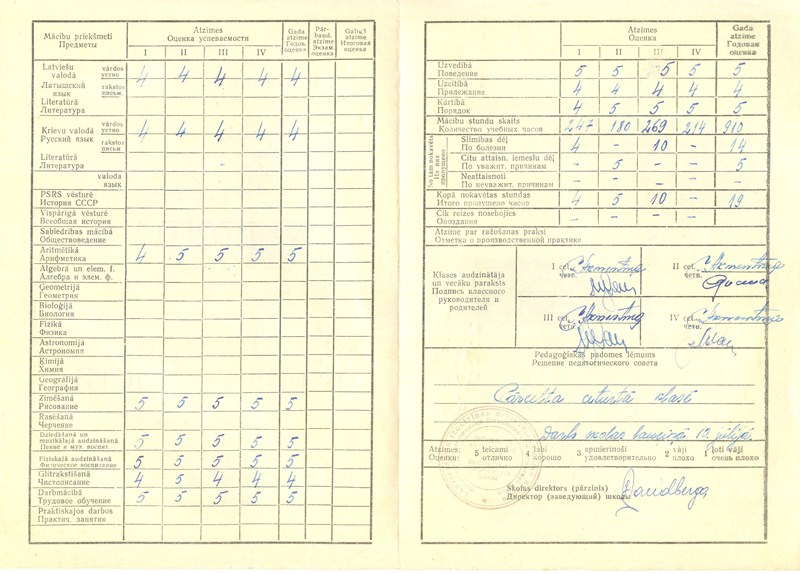 Mācību priekšmeti
Предметы
Atzīmes
Оценка успеваемости
I II III IV
Gada atzīme
Годов. оценка
Pārbaud. atzīme
Экзам. оценка
Galīgā atzīme
Итоговая оценка
Latviešu valodā vārdos устно 4 4 4 4 4
Латышский язык rakstos письм.
Literatūrā
Литература
Krievu valodā vārdos устно 4 4 4 4 4
Русский язык rakstos письм.
Literatūrā
Литература -
valodā
язык
PSRS vēsturē
История СССР
Vispārīgā vēsturē
Всеобщая история
Sabiedrības mācībā
Обществоведение
Aritmētikā 4 5 5 5 5
Арифметика
Algebrā un elem. f.
Алгебра и элем. ф.
Ģeometrijā
Геометрия
Bioloģijā
Биология
Fizikā
Физика
Astronomijā
Астрономия
Ķīmijā
Химия
Ģeogrāfijā
География
Zīmēšanā 5 5 5 5 5
Рисование
Rasēšanā
Черчение
Dziedāšanā un
muzikālajā audzināšanā 5 5 5 5 5
Пение и муз. воспит.
Fiziskajā audzināšanā 5 5 5 5 5
Физическое воспитание
Glītrakstīšanā 4 5 4 4 4
Чистописание
Darbmācībā 5 5 5 5 5
Трудовое обучение
Praktiskajos darbos
Практич. занятия
Atzīmes
Оценка
I II III IV
Gada atzīme
Годовая оценка
Uzvedībā 5 5 5 5 5
Поведение
Uzcītībā 4 4 4 4 4
Прилежание
Kārtībā 4 5 5 5 5
Порядок
Mācību stundu skaits 247 180 269 214 910
Количество учебных часов
No tām nokavēts
Из них пропущено
Slimības dēļ 4 - 10 - 14
По болезни
Citu attaisn. iemeslu dēļ - 5 - - 5
По уважит. причинам
Neattaisnoti - - - - -
По неуважит. причинам
Kopā nokavētas stundas 4 5 10 - 19
Итого пропущено часов
Cik reizes nosebojies - - - - -
Опоздания
Atzīme par ražošanas praksi
Отметка о производственной практике
Klases audzinātāja
un vecāku paraksts
Подпись классного
руководителя и
родителей
I cet.
четв.
II cet.
четв.
III cet.
четв.
IV cet.
четв.
Pedagoģiskās padomes lēmums
Решение педагогического совета
Pārcelta ceturtā klasē
Darbs skolas 12. jūlijā.
Atzīmes: 5 teicami 4 labi 3 apmierinoši 2 vāji 1 ļoti vāji
Оценки: отлично хорошо удовлетворительно плохо очень плохо
Skolas direktors (pārzinis)
Директор (заведующий) школы